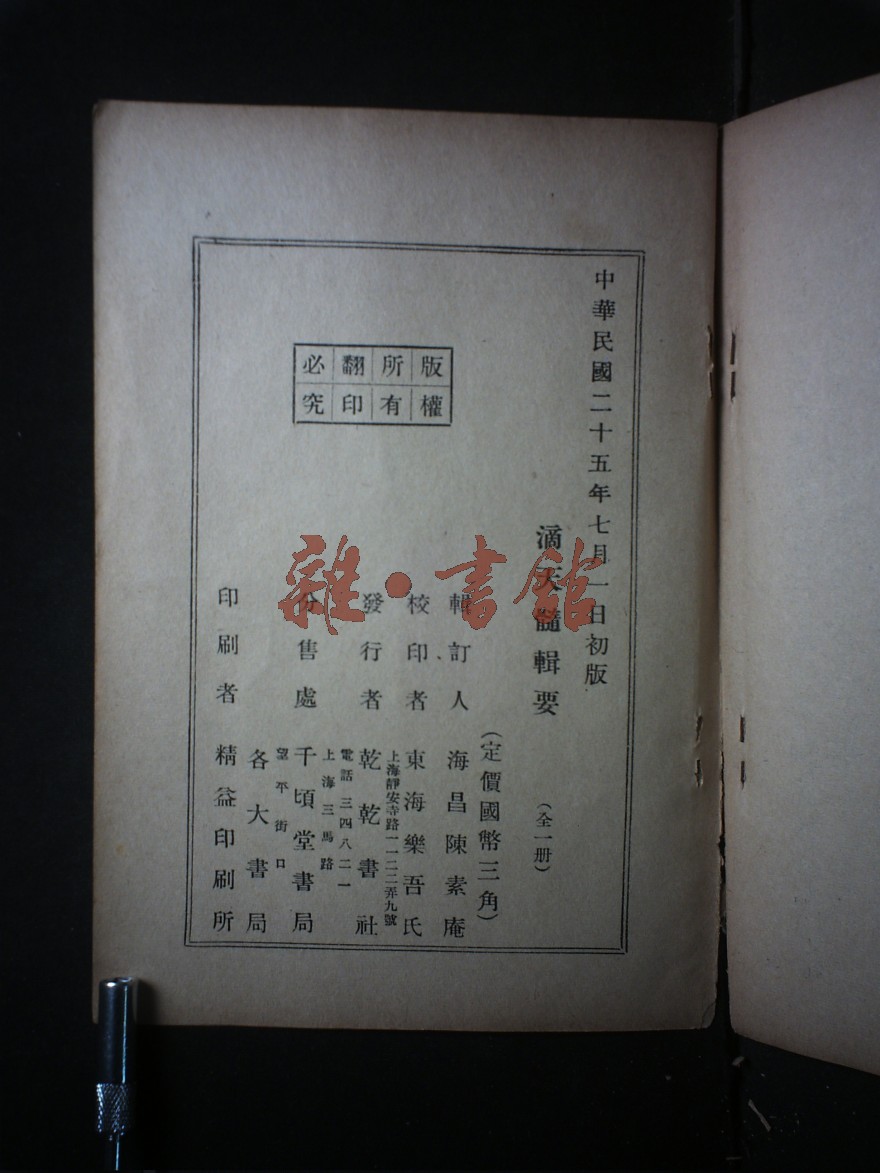 中華民國二十五年七月一日初版
滴天髓輯要 （全一册）
（定價國幣三角）
版權所有翻印必究
輯訂人 海昌陳素庵
校印者 東海樂吾氏
上海靜安寺路一一二二弄九號
發行者 乾乾書社
電話三四八二一
上海三馬路
分售處 千頃堂書局
望平街口
各大書局
印刷者 精益印刷所
雜·書館